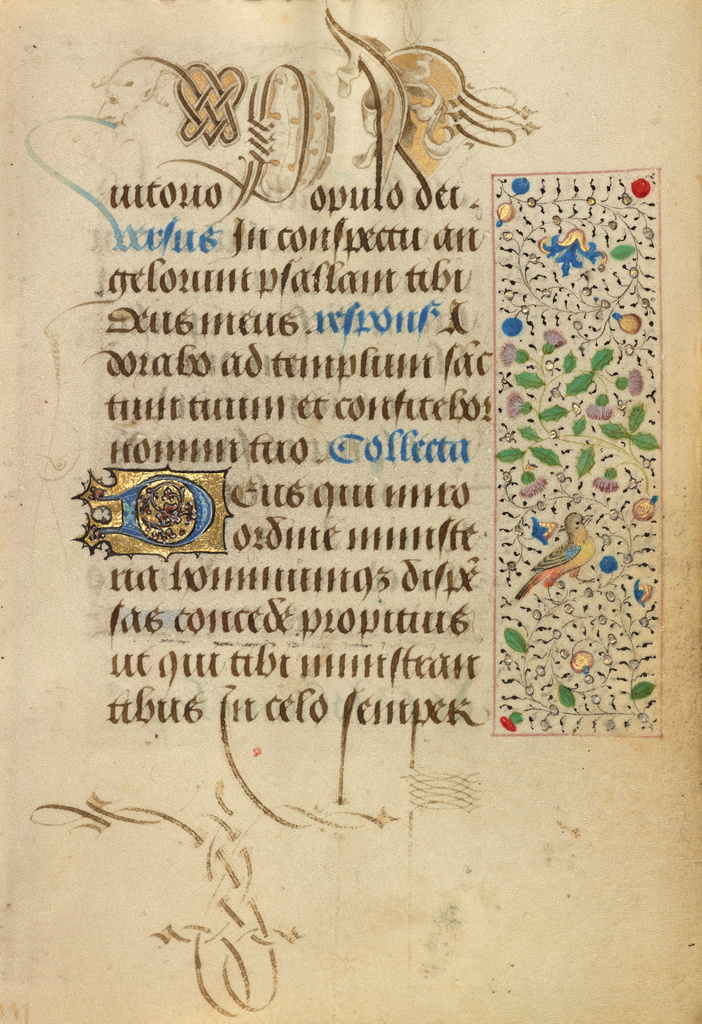 iutorio Populo dei.
versus In conspectu an
gelorum psallam tibi
Deus meus. respons⁹ A
dorabo ad templum sāc
tum tuum et confitebor
nomini tuo. Collecta
Deus qui miro
ordine ministe
ria hominumqꝫ dispē
sas concede propitius
ut qui tibi ministran
tibus in celo semper